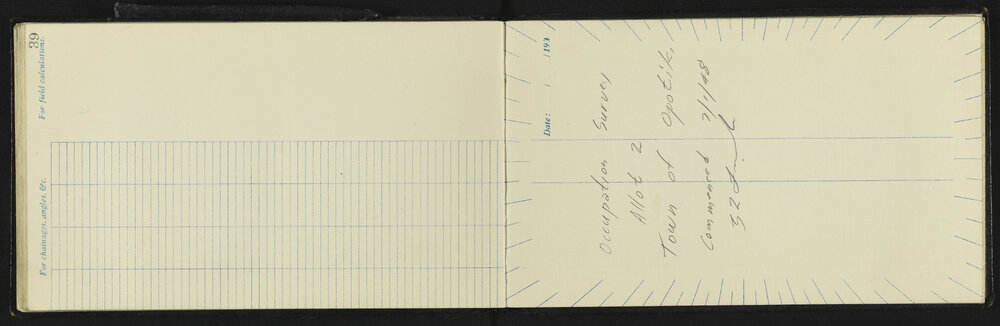 39
For field calculations.
For chainages, angles, &c.
Date: 193
Occupation Survey
Allot 2
Town of Opotiki
Commenced 7/1/48